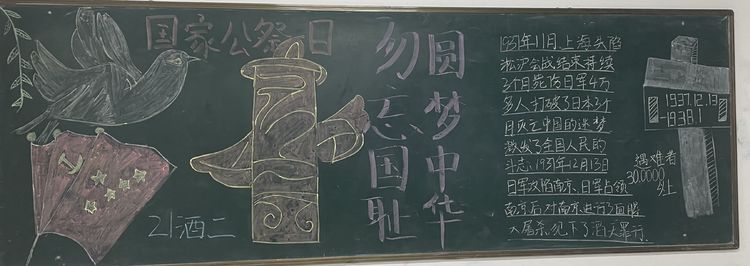 国家公祭日
勿忘国耻
圆梦中华
21酒二
1937年11月上海失陷
淞沪会战结束持续
3个月毙伤日军4万
多人打破了日本3个
月灭亡中国的迷梦
激发了全国人民的
斗志,1937年12月13日
日军攻陷南京、日军占领
南京后对南京进行了血腥
大屠杀,犯下了滔天罪行.
1937.12.13
-1938.1
遇难者
300000
以上